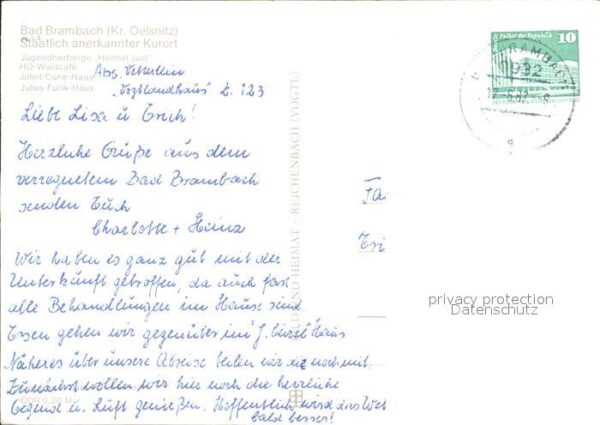 Bad Brambach (Kr. Oelsnitz)
Staatlich anerkannter Kurort
Jugendherberge "Helmut Just"
HO-Waldcafé
Joliot-Curie-Haus
Julius-Fučik-Haus
Abs.
"Vogtlandhaus" Z. 123
Liebe Lisa u. Erich!
Herzliche Grüße aus dem
verregnetem Bad Brambach
senden Euch
Charlotte + Heinz
Wir haben es ganz gut mit der
Unterkunft getroffen, da auch fast
alle Behandlungen im Hause sind
Essen gehen wir gegenüber im J. Curie Haus
Näheres über unsere Abreise teilen wir noch mit.
Zunächst wollen wir hier noch die herrliche
Gegend u. Luft genießen. Hoffentlich wird das Wet
bald besser!
BILD UND HEIMAT - REICHENBACH (VOGTL)
10
BRAMBACH
9932
privacy protection
Datenschutz